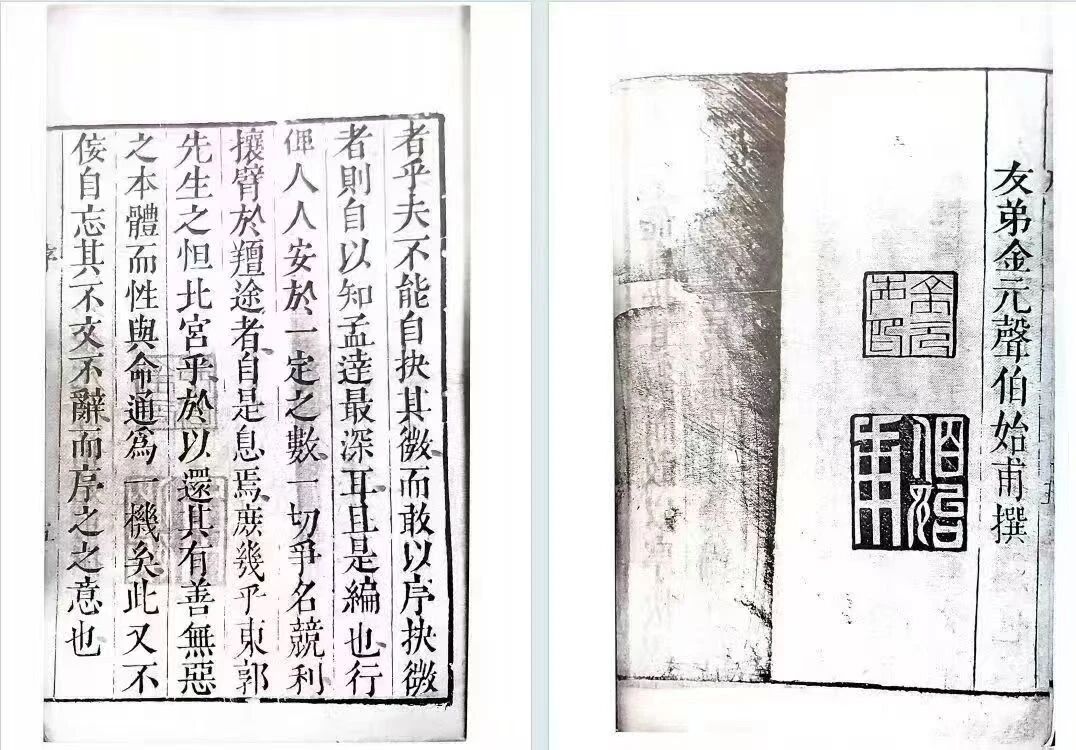 者乎夫不能自抉其微而敢以序抉微
者則自以知孟逵最深耳且是編也行
俾人人安於一定之數一切爭名競利
攘臂於羶途者自是息焉庶幾乎東郭
先生之怛北宮乎於以還其有善無惡
之本體而性與命通爲一機矣此又不
佞自忘其不文不辭而序之之意也
序
五
友弟金元聲伯始甫撰
伯始甫